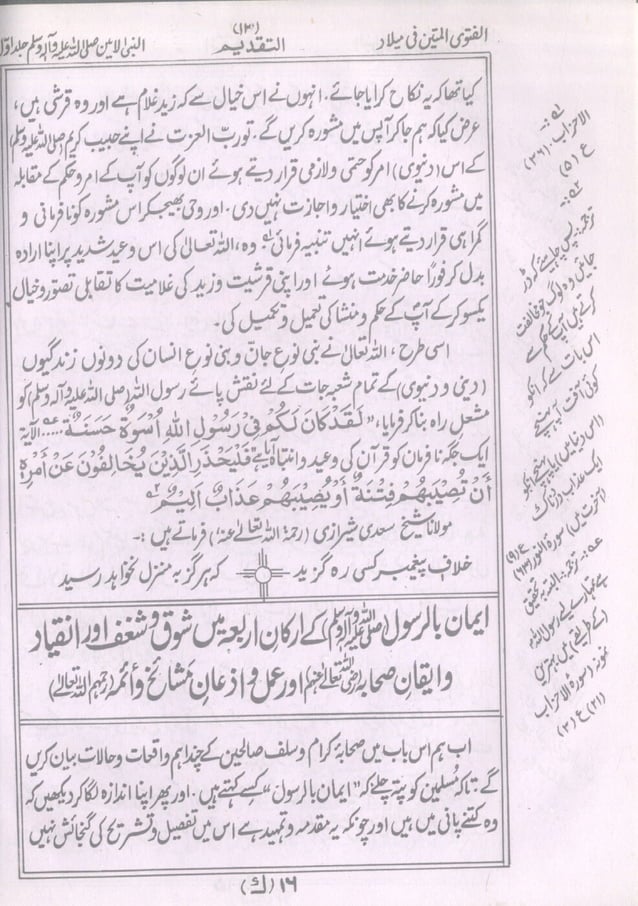 (۱۳)
الفتوی المتین فی میلاد
التقدیم
النبی الامین صلی اللہ علیہ وآلہ وسلم جلد اوّل
کیا تھا کہ یہ نکاح کرایا جائے۔ انہوں نے اس خیال سے کہ زید غلام ہے اور وہ قرشی ہیں،
عرض کیا کہ ہم جا کر آپس میں مشورہ کریں گے۔ تو ربّ العزت نے اپنے حبیب کریم (صلی اللہ علیہ وسلم)
کے اس (دنیوی) امر کو حتمی ولازمی قرار دیتے ہوئے ان لوگوں کو آپ کے امر وحکم کے مقابلہ
میں مشورہ کرنے کا بھی اختیار واجازت نہیں دی۔ اور وحی بھیجکر اس مشورہ کو نافرمانی و
گمراہی قرار دیتے ہوئے انہیں تنبیہ فرمائی۱ وہ، اللہ تعالیٰ کی اس وعید شدید پر اپنا ارادہ
بدل کر فورًا حاضر خدمت ہوئے اور اپنی قرشیت و زید کی غلامیت کا تقابلی تصور وخیال
یکسو کر کے آپؐ کے حکم و منشا کی تعمیل و تکمیل کی۔
اسی طرح، اللہ تعالیٰ نے بنی نوعِ جان و بنی نوعِ انسان کی دونوں زندگیوں
(دینی و دنیوی) کے تمام شعبہ جات کے لئے نقشِ پائے رسول اللہ (صلی اللہ علیہ وآلہ وسلم) کو
مشعل راہ بنا کر فرمایا، ”لَقَدْ كَانَ لَكُمْ فِيْ رَسُوْلِ اللهِ اُسْوَةٌ حَسَنَةٌ ....الآیۃ
ایک جگہ نافرمان کو قرآن کی وعید و انتباہ آیا ہے فَلْيَحْذَرِ الَّذِيْنَ يُخَالِفُوْنَ عَنْ اَمْرِهٖ
اَنْ تُصِيْبَهُمْ فِتْنَةٌ اَوْ يُصِيْبَهُمْ عَذَابٌ اَلِيْمٌ ۲
مولانا شیخ سعدی شیرازی (رحمۃ اللہ تعالیٰ عنہ) فرماتے ہیں :-
خلافِ پیمبر کسی رہ گزید کہ ہرگز بہ منزل نخواہد رسید
ایمان بالرسول (صلی اللہ علیہ وآلہ وسلم) کے ارکانِ اربعہ میں شوق و شغف اور انقیاد
و ایقانِ صحابہ (رضی اللہ تعالیٰ عنہم) اور عمل و اذعانِ مشائخ و أئمہ (رحمہم اللہ تعالیٰ)
اب ہم اس باب میں صحابۂ کرام و سلف صالحین کے چند اہم واقعات وحالات بیان کریں
گے؛ تاکہ مُسلمین کو پتہ چلے کہ ”ایمان بالرسول“ کسے کہتے ہیں۔ اور پھر اپنا اندازہ لگا کر دیکھیں کہ
وہ کتنے پانی میں ہیں اور چونکہ یہ مقدمہ و تمہید ہے اس میں تفصیل و تشریح کی گنجائش نہیں
الاحزاب۔ (۳۶)
ع (۵)
ترجمہ: پس چاہیے کہ ڈر
جائیں وہ لوگ جو مخالفت
کرتے ہیں آپ کے حکم سے
اس بات سے کہ انکو
کوئی آفت آ پہنچے
(اس دنیا میں) یا پہنچے انکو
ایک عذاب دردناک
(آخرت میں) سورۃ النور (۶۳) ع (۹)
ترجمہ: البتہ بہ تحقیق
ہے تمہارے لیے رسول اللہ
کے طریقے میں بہترین
نمونہ (سورۃ الاحزاب
(۲۱) ع (۲)
۱۶ (ک)